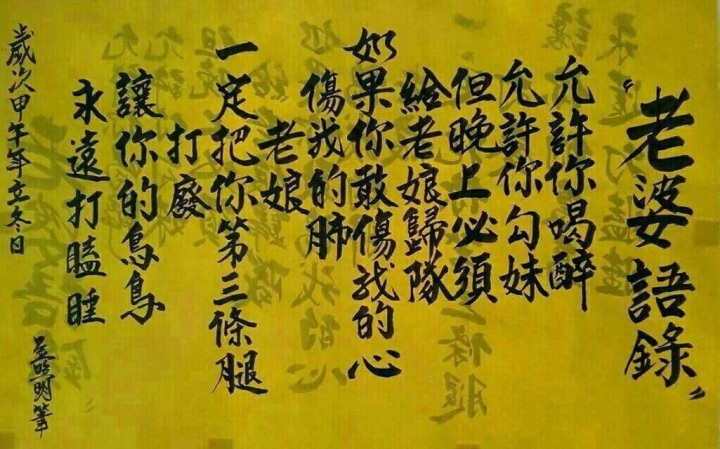 "老婆語錄"
允許你喝醉
允許你勾妹
但晚上必須
給老娘歸隊
如果你敢傷我的心
傷我的肺
老娘
一定把你第三條腿
打廢
讓你的鳥鳥
永遠打瞌睡
歲次甲午年立冬日
明筆